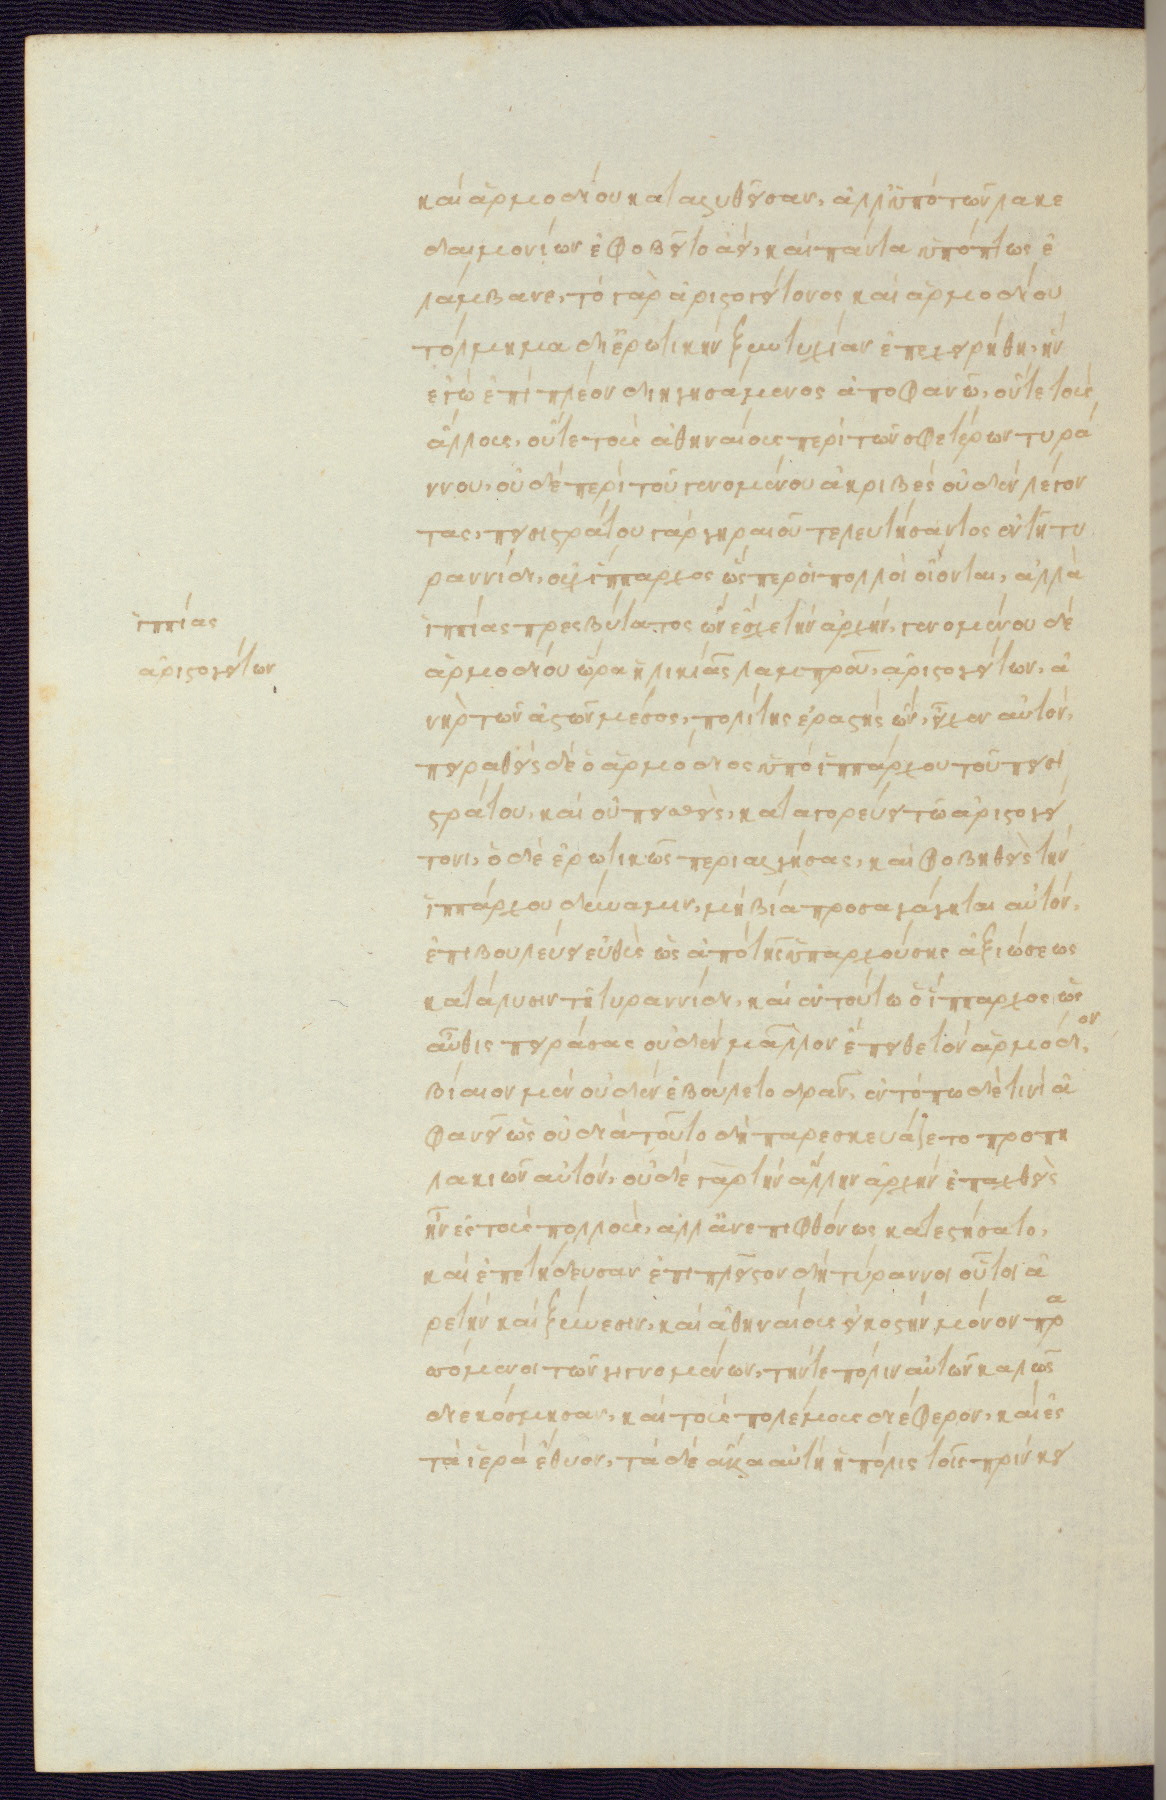 καὶ ἁρμοδίου καταλυθεῖσαν, ἀλλ' ὑπὸ τῶν λακε
δαιμονίων ἐφοβεῖτο ἀεί, καὶ πάντα ὑπόπτως ἐ
λάμβανε, τὸ γὰρ ἀριστογείτονος καὶ ἁρμοδίου
τόλμημα δι' ἐρωτικὴν ξυντυχίαν ἐπεχειρήθη, ἣν
ἐγὼ ἐπὶ πλέον διηγησάμενος ἀποφανῶ, οὔτε τοὺς
ἄλλους, οὔτε τοὺς ἀθηναίους περὶ τῶν σφετέρων τυρά
ννου, οὐδὲ περὶ τοῦ γενομένου ἀκριβὲς οὐδὲν λέγον
τας, πεισιστράτου γὰρ γηραιοῦ τελευτήσαντος ἐν τῆ τυ
ραννίδι, οὐχ ἵππαρχος ὥσπερ οἱ πολλοὶ οἴονται, ἀλλὰ
ἱππίας
ἱππίας πρεσβύτατος ὢν ἔσχε τὴν ἀρχήν, γενομένου δὲ
ἀριστογείτων
ἁρμοδίου ὥρα ἡλικίας λαμπροῦ, ἀριστογείτων, ἀ
νὴρ τῶν ἀστῶν μέσος, πολίτης ἐραστὴς ὤν, εἶχεν αὐτόν,
πειραθεὶς δὲ ὁ ἁρμόδιος ὑπὸ ἱππάρχου τοῦ πεισι
στράτου, καὶ οὐ πεισθεὶς, καταγορεύει τῶ ἀριστογεί
τονι, ὁ δὲ ἐρωτικῶς περιαλγήσας, καὶ φοβηθεὶς τὴν
ἱππάρχου δύναμιν, μὴ βία προσαγάγηται αὐτόν,
ἐπιβουλεύει εὐθὺς ὡς ἀπὸ τῆς ὑπαρχούσης ἀξιώσεως
κατάλυσιν τῆ τυραννίδι, καὶ ἐν τούτω ὁ ἵππαρχος ὡς
αὖθις πειράσας οὐδὲν μᾶλλον ἔπειθε τὸν ἁρμόδιον,
βίαιον μὲν οὐδὲν ἐβούλετο δρᾶν, ἐν τόπω δέ τινι ἀ
φανεῖ ὡς οὐ διὰ τοῦτο δὴ παρεσκευάζετο προπη
λακιῶν αὐτόν, οὐδὲ γὰρ τὴν ἄλλην ἀρχὴν ἐπαχθὴς
ἦν ἐς τοὺς πολλούς, ἀλλ' ἀνεπιφθόνως κατεστήσατο,
καὶ ἐπετήδευσαν ἐπὶ πλεῖστον δὴ τύραννοι οὗτοι ἀ
ρετὴν καὶ ξύνεσιν, καὶ ἀθηναίους εἰκοστὴν μόνον πρα
σσόμενοι τῶν γιγνομένων, τήν τε πόλιν αὐτῶν καλῶς
διεκόσμησαν, καὶ τοὺς πολέμους διέφερον, καὶ ἐς
τὰ ἱερὰ ἔθυον, τὰ δὲ ἄλλα αὐτὴ ἡ πόλις τοῖς πρὶν κει